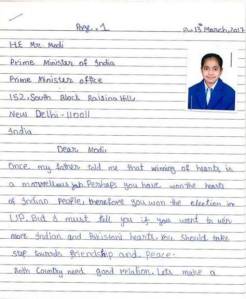 Page . 1
13th March, 2017
H.E Mr. Modi
Prime Minister of India
Prime Minister office
152, South Block Raisina Hill,
New Delhi-11011
India
Dear Modi,
Once my father told me that winning of hearts is
a marvellous job. Perhaps you have won the hearts
of Indian people, therefore you won the election in
U.P. But I must tell you if you want to win
more Indian and Pakistani hearts. You should take
step towards friendship and peace.
Both Country need good relation. Lets make a